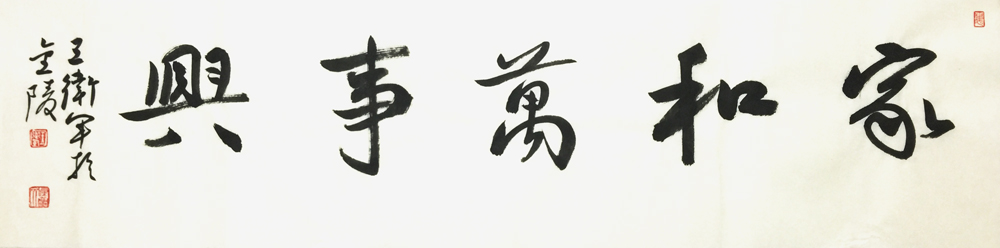 家和萬事興
王衛軍於
金陵